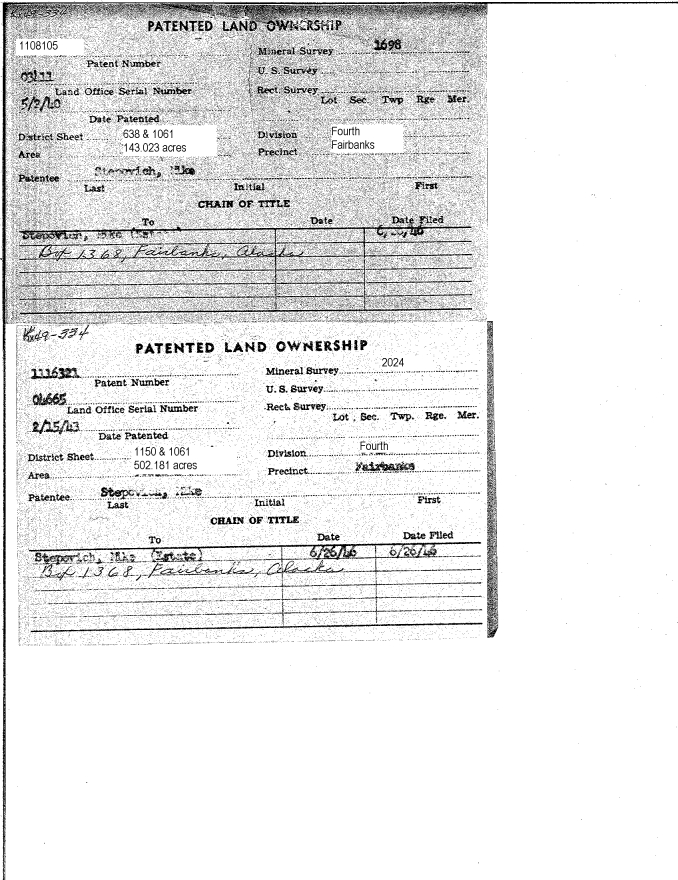 PATENTED LAND OWNERSHIP
1108105
Mineral Survey 1698
Patent Number
U. S. Survey
Land Office Serial Number
Rect. Survey
Lot Sec. Twp Rge Mer.
5/2/40
Date Patented
District Sheet 638 & 1061
Division Fourth
Area 143.023 acres
Precinct Fairbanks
Patentee Stepovich, Mike
Last Initial First
CHAIN OF TITLE
To Date Date Filed
Stepovich, Mike (Estate)
Box 1368, Fairbanks, Alaska
Kx49-334
PATENTED LAND OWNERSHIP
1116321
Mineral Survey 2024
Patent Number
U. S. Survey
04665
Land Office Serial Number
Rect. Survey
Lot Sec. Twp. Rge. Mer.
2/25/43
Date Patented
District Sheet 1150 & 1061
Division Fourth
Area 502.181 acres
Precinct Fairbanks
Patentee Stepovich, Mike
Last Initial First
CHAIN OF TITLE
To Date Date Filed
Stepovich, Mike (Estate) 6/26/46 6/26/46
Box 1368, Fairbanks, Alaska